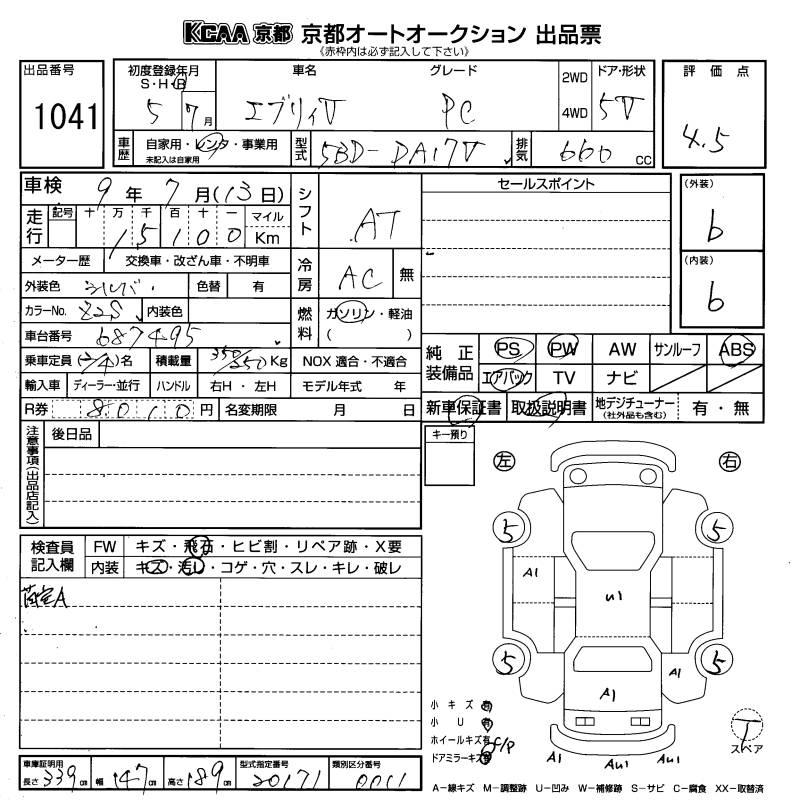 KCAA 京都 京都オートオークション 出品票
《赤枠内は必ず記入して下さい》
出品番号 1041
初度登録年月 S・H・R 5 7月
車名 エブリィV
グレード PC
2WD 4WD
ドア・形状 5V
評価点 4.5
車歴 自家用・レンタ・事業用 未記入は自家用
型式 5BD-DA17V
排気 660 CC
車検 9年 7月(13日)
シフト AT
セールスポイント
(外装) b
(内装) b
走行 記号 十 万 千 百 十 一 マイル
15100 Km
メーター歴 交換車・改ざん車・不明車
冷房 AC 無
外装色 シルバー 色替 有
カラーNo. Z2S 内装色
燃料 ガソリン・軽油 ( )
車台番号 687495
乗車定員 (2/4)名 積載量 350/250 Kg NOX 適合・不適合
純正装備品 PS PW AW サンルーフ ABS
エアバック TV ナビ
輸入車 ディーラー・並行 ハンドル 右H・左H モデル年式 年
R券 8010円 名変期限 月 日
新車保証書 取扱説明書 地デジチューナー (社外品も含む) 有・無
注意事項(出品店記入) 後日品
キー預り
左 右
検査員記入欄 FW キズ・飛石・ヒビ割・リペア跡・X要
内装 キズ・汚レ・コゲ・穴・スレ・キレ・破レ
荷室A
5 5
A1 U1
5 5
A1 A1
小キズ 有
小U 有
ホイールキズ 有 F/P
ドアミラーキズ 有
A1 AU1 AU1
T スペア
車庫証明用 長さ 339cm 幅 147cm 高さ 189cm 型式指定番号 20171 類別区分番号 0011
A−線キズ M−調整跡 U−凹み W−補修跡 S−サビ C−腐食 XX−取替済